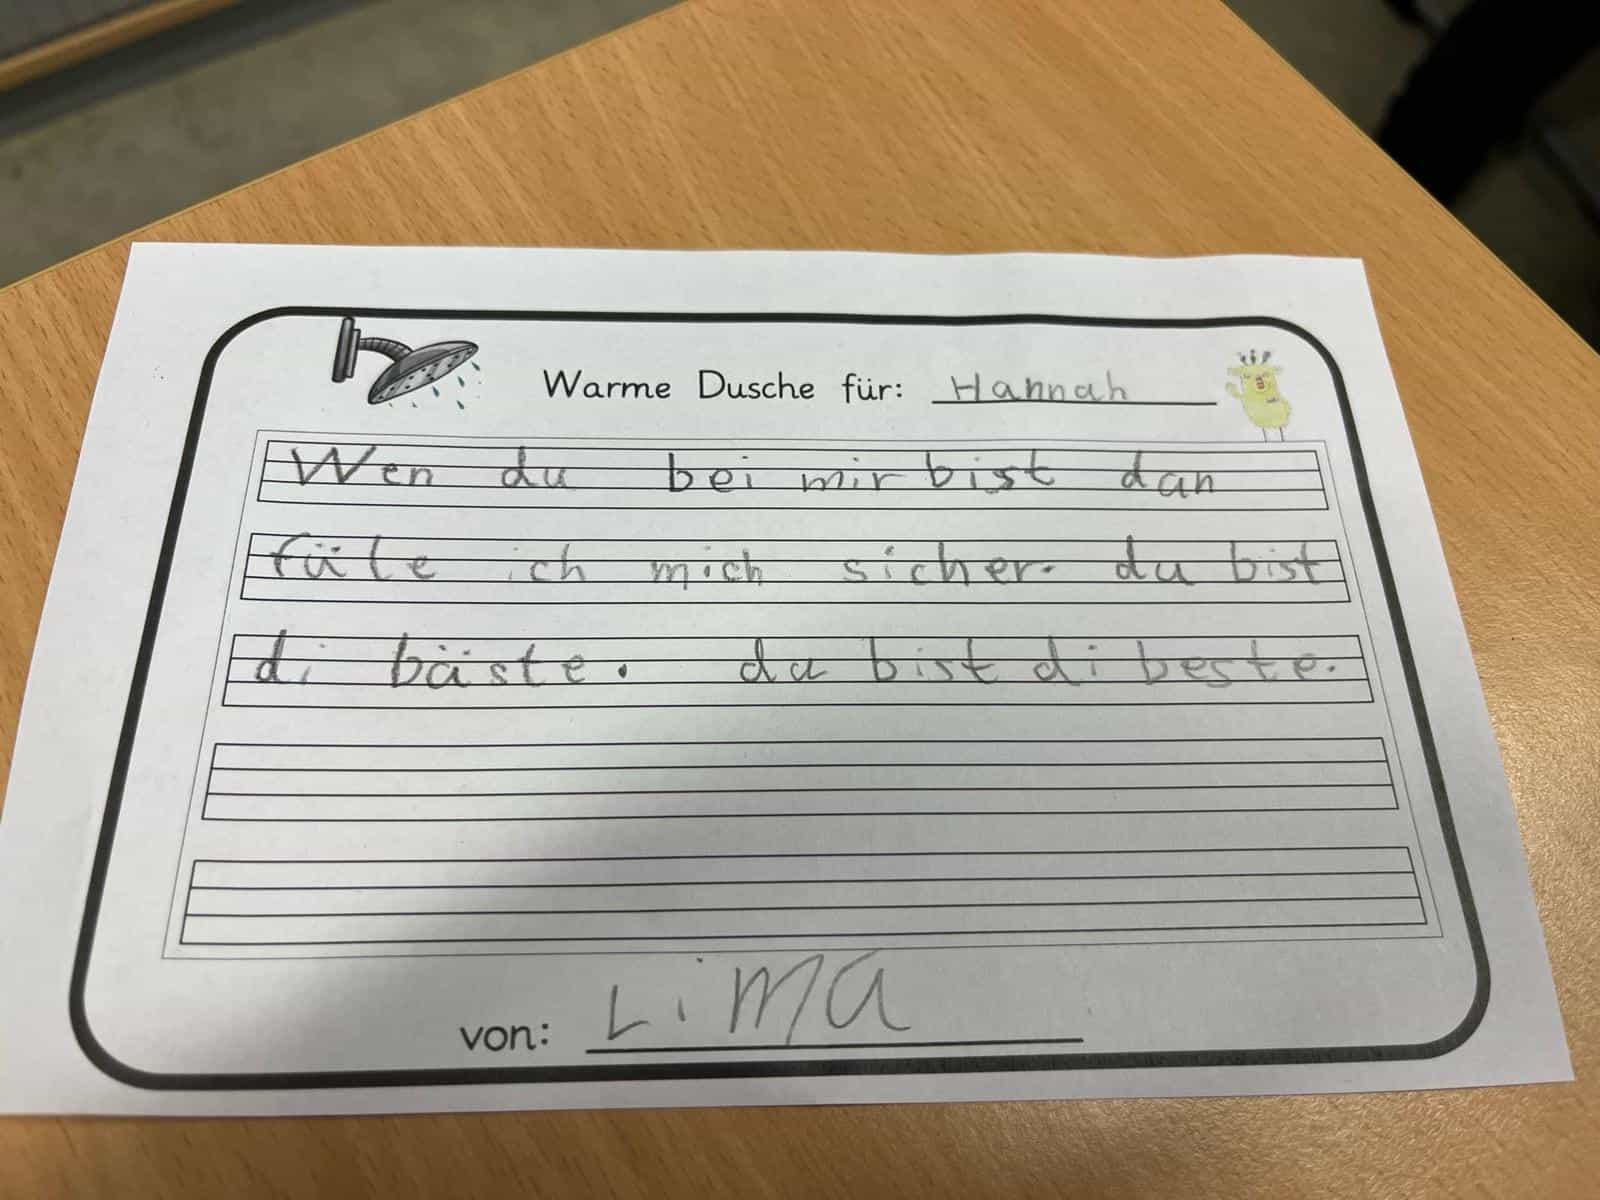 Warme Dusche für: Hannah
Wen du bei mir bist dan
füle ich mich sicher. du bist
di bäste. du bist di beste.
von: Lima